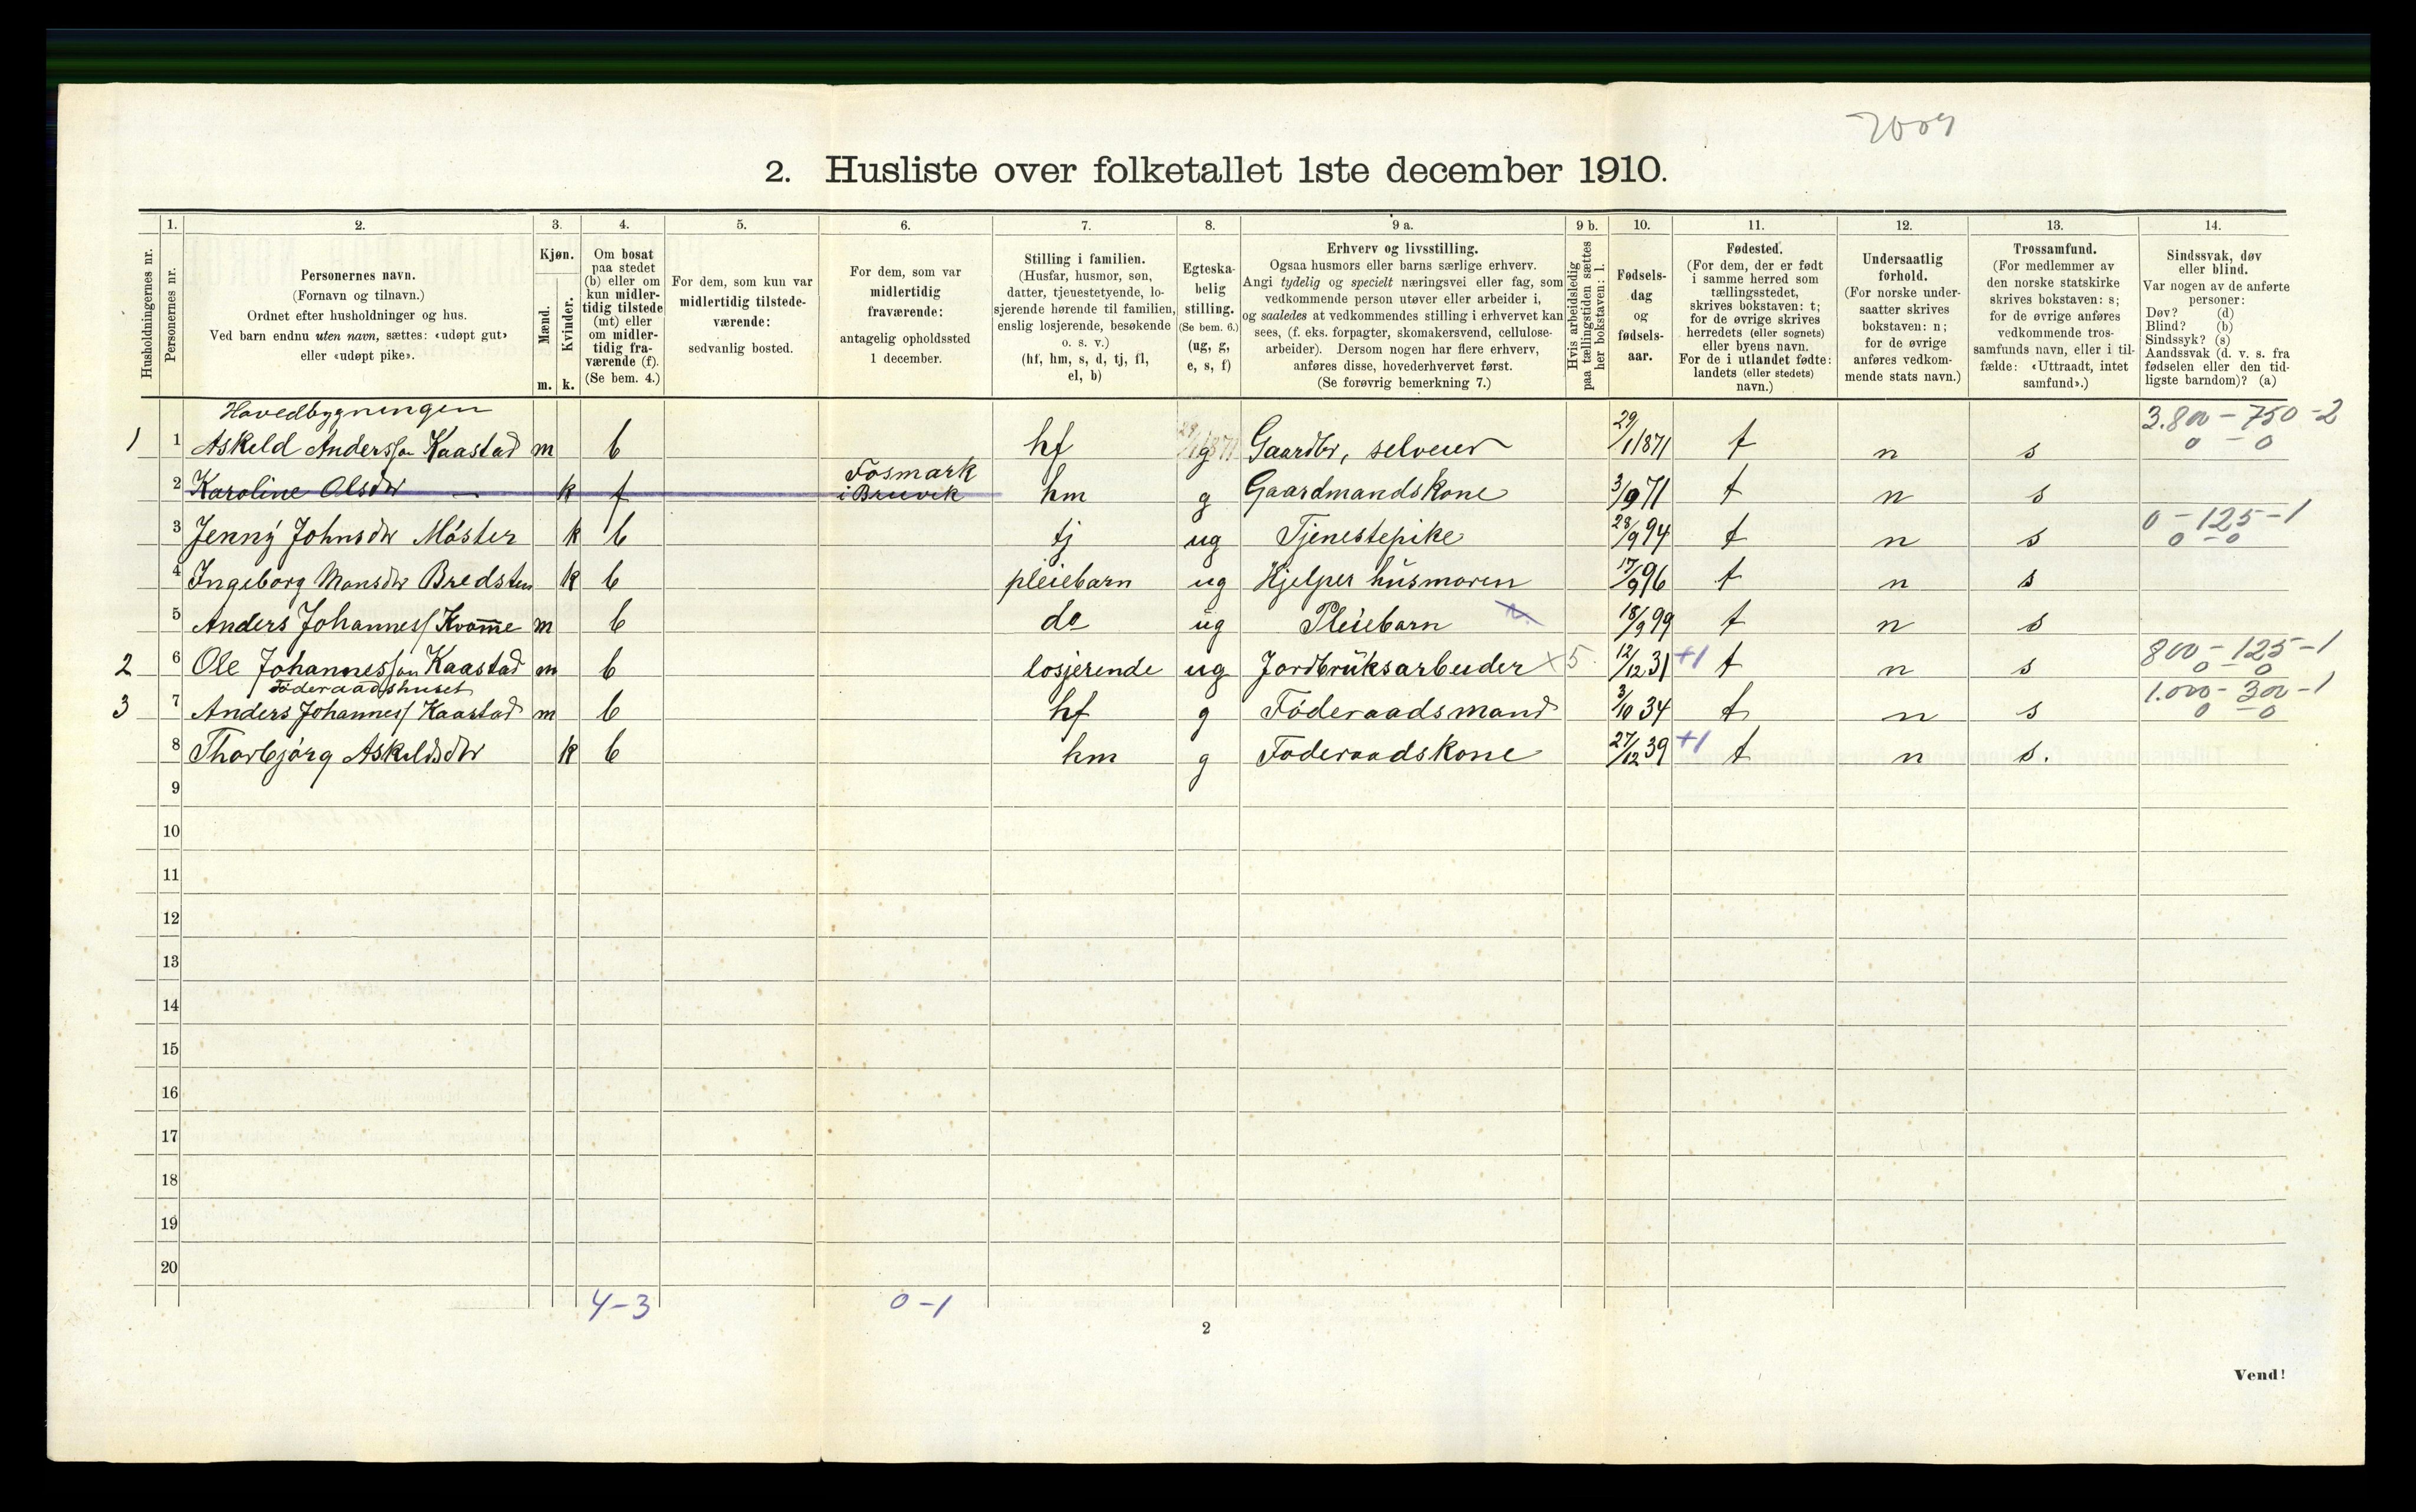 2. Husliste over folketallet 1ste december 1910.
Husholdningernes nr.
1.
Personernes nr.
2.
Personernes navn.
(Fornavn og tilnavn.)
Ordnet efter husholdninger og hus.
Ved barn endnu uten navn, sættes: «udøpt gut»
eller «udøpt pike».
3.
Kjøn.
Mænd.
Kvinder.
m. k.
4.
Om bosat
paa stedet
(b) eller om
kun midler-
tidig tilstede
(mt) eller
om midler-
tidig fra-
værende (f).
(Se bem. 4.)
5.
For dem, som kun var
midlertidig tilstede-
værende:
sedvanlig bosted.
6.
For dem, som var
midlertidig
fraværende:
antagelig opholdssted
1 december.
7.
Stilling i familien.
(Husfar, husmor, søn,
datter, tjenestetyende, lo-
sjerende hørende til familien,
enslig losjerende, besøkende
o. s. v.)
(hf, hm, s, d, tj, fl,
el, b)
8.
Egteska-
belig
stilling.
(Se bem. 6.)
(ug, g,
e, s, f)
9 a.
Erhverv og livsstilling.
Ogsaa husmors eller barns særlige erhverv.
Angi tydelig og specielt næringsvei eller fag, som
vedkommende person utøver eller arbeider i,
og saaledes at vedkommendes stilling i erhvervet kan
sees, (f. eks. forpagter, skomakersvend, cellulose-
arbeider). Dersom nogen har flere erhverv,
anføres disse, hovederhvervet først.
(Se forøvrig bemerkning 7.)
9 b.
Hvis arbeidsledig
paa tællingstiden sættes
her bokstaven: l.
10.
Fødsels-
dag
og
fødsels-
aar.
11.
Fødested.
(For dem, der er født
i samme herred som
tællingsstedet,
skrives bokstaven: t;
for de øvrige skrives
herredets (eller sognets)
eller byens navn.
For de i utlandet fødte:
landets (eller stedets)
navn.)
12.
Undersaatlig
forhold.
(For norske under-
saatter skrives
bokstaven: n;
for de øvrige
anføres vedkom-
mende stats navn.)
13.
Trossamfund.
(For medlemmer av
den norske statskirke
skrives bokstaven: s;
for de øvrige anføres
vedkommende tros-
samfunds navn, eller i til-
fælde: «Uttraadt, intet
samfund».)
14.
Sindssvak, døv
eller blind.
Var nogen av de anførte
personer:
Døv? (d)
Blind? (b)
Sindssyk? (s)
Aandssvak (d. v. s. fra
fødselen eller den tid-
ligste barndom)? (a)
Hovedbygningen
3.800 - 750 - 2
1 1 Askeld Andersson Kaastad m b hf g Gaardbr, selveier 29/1 1871 t n s 0 - 0
Fosmark
2 Karoline Olsdtr — k f i Bruvik hm g Gaardmandskone 3/9 71 t n s
0 - 125 - 1
3 Jenny Johnsdtr Møster k b tj ug Tjenestepike 28/9 94 t n s 0 - 0
4 Ingeborg Monsdtr Bredsten k b pleiebarn ug Hjelper husmoren 17/9 96 t n s
5 Anders Johanness Kvamme m b do ug Pleiebarn 18/9 99 t n s
800 - 125 - 1
2 6 Ole Johannesson Kaastad m b losjerende ug Jordbruksarbeider x 5. 12/12 31 +1 t n s 0 - 0
Føderaadshuset
1.000 - 300 - 1
3 7 Anders Johanness Kaastad m b hf g Føderaadsmand 3/10 34 t n s 0 - 0
8 Thorbjørg Askeldsdtr k b hm g Føderaadskone 27/12 39 +1 t n s.
9
10
11
12
13
14
15
16
17
18
19
20
4 - 3 0 - 1
2
Vend!